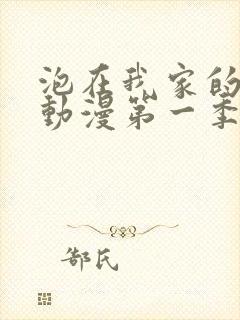 泡在我家的
動漫第一季
郜氏